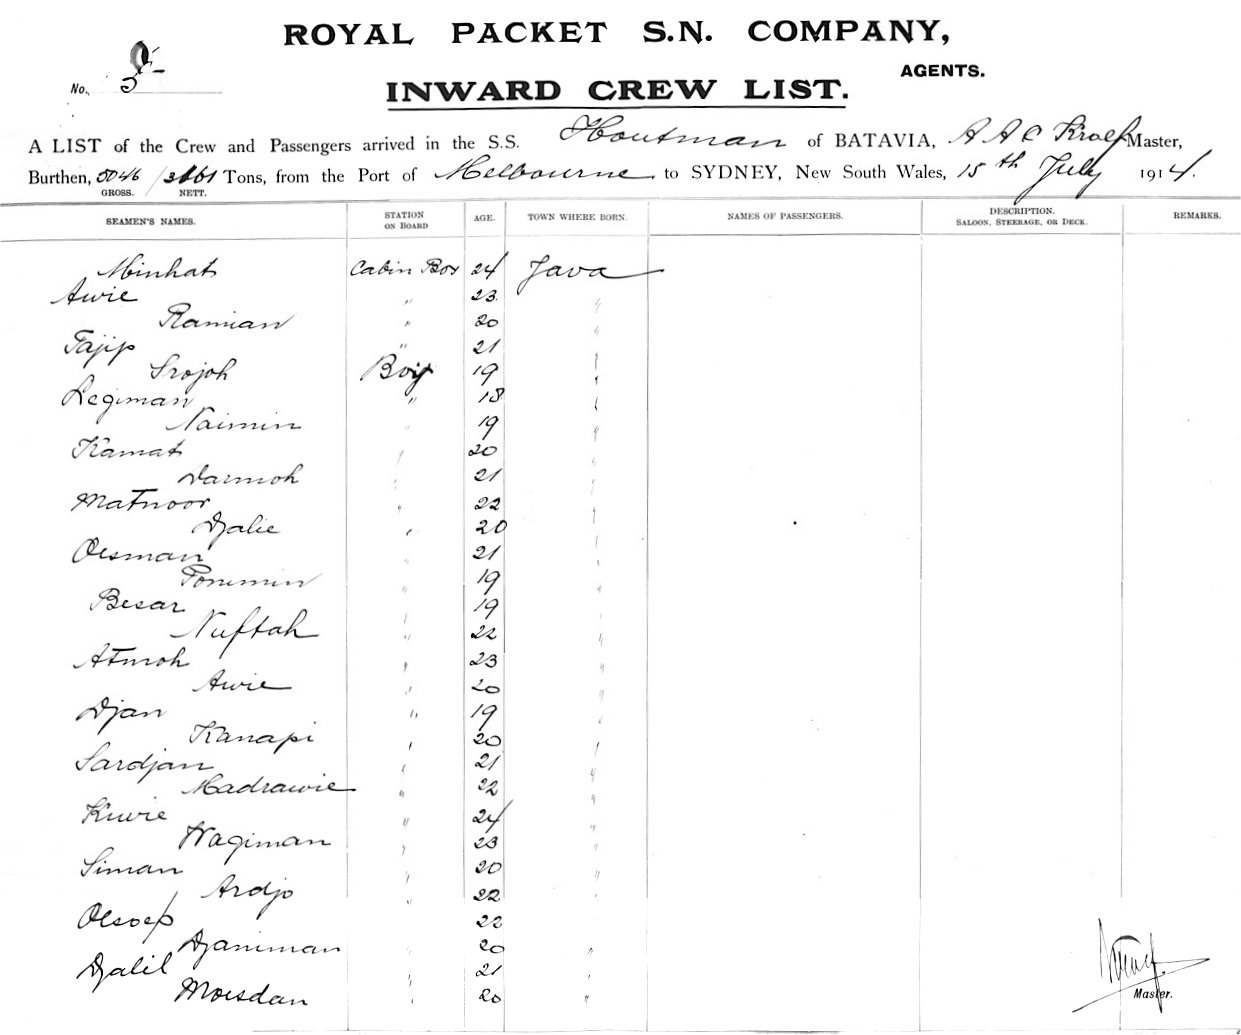 ROYAL PACKET S.N. COMPANY,
AGENTS.
No. 5
INWARD CREW LIST.
A LIST of the Crew and Passengers arrived in the S.S. Houtman of BATAVIA, A A C Kroef Master,
Burthen, 5046 / 3161 Tons, from the Port of Melbourne to SYDNEY, New South Wales, 15th July 1914.
GROSS. NETT.
SEAMEN'S NAMES. STATION ON BOARD AGE. TOWN WHERE BORN. NAMES OF PASSENGERS. DESCRIPTION. SALOON, STEERAGE, OR DECK. REMARKS.
Minhat Cabin Boy 24 Java
Awie " 23 "
Ramian " 20 "
Tajip " 21 "
Srojoh Boy 19 "
Legiman " 18 "
Naimin " 19 "
Kamat " 20 "
Darmoh " 21 "
Matnoor " 22 "
Djalie " 20 "
Oesman " 21 "
Ponimin " 19 "
Besar " 19 "
Nuftah " 22 "
Atmoh " 23 "
Awie " 20 "
Djan " 19 "
Kanapi " 20 "
Sardjan " 21 "
Madrawie " 22 "
Kiwie " 24 "
Wagiman " 23 "
Siman " 20 "
Ardjo " 22 "
Oesoep 22
Djaniman " 20 "
Djalil " 21 "
Moesdan " 20 "
Master.